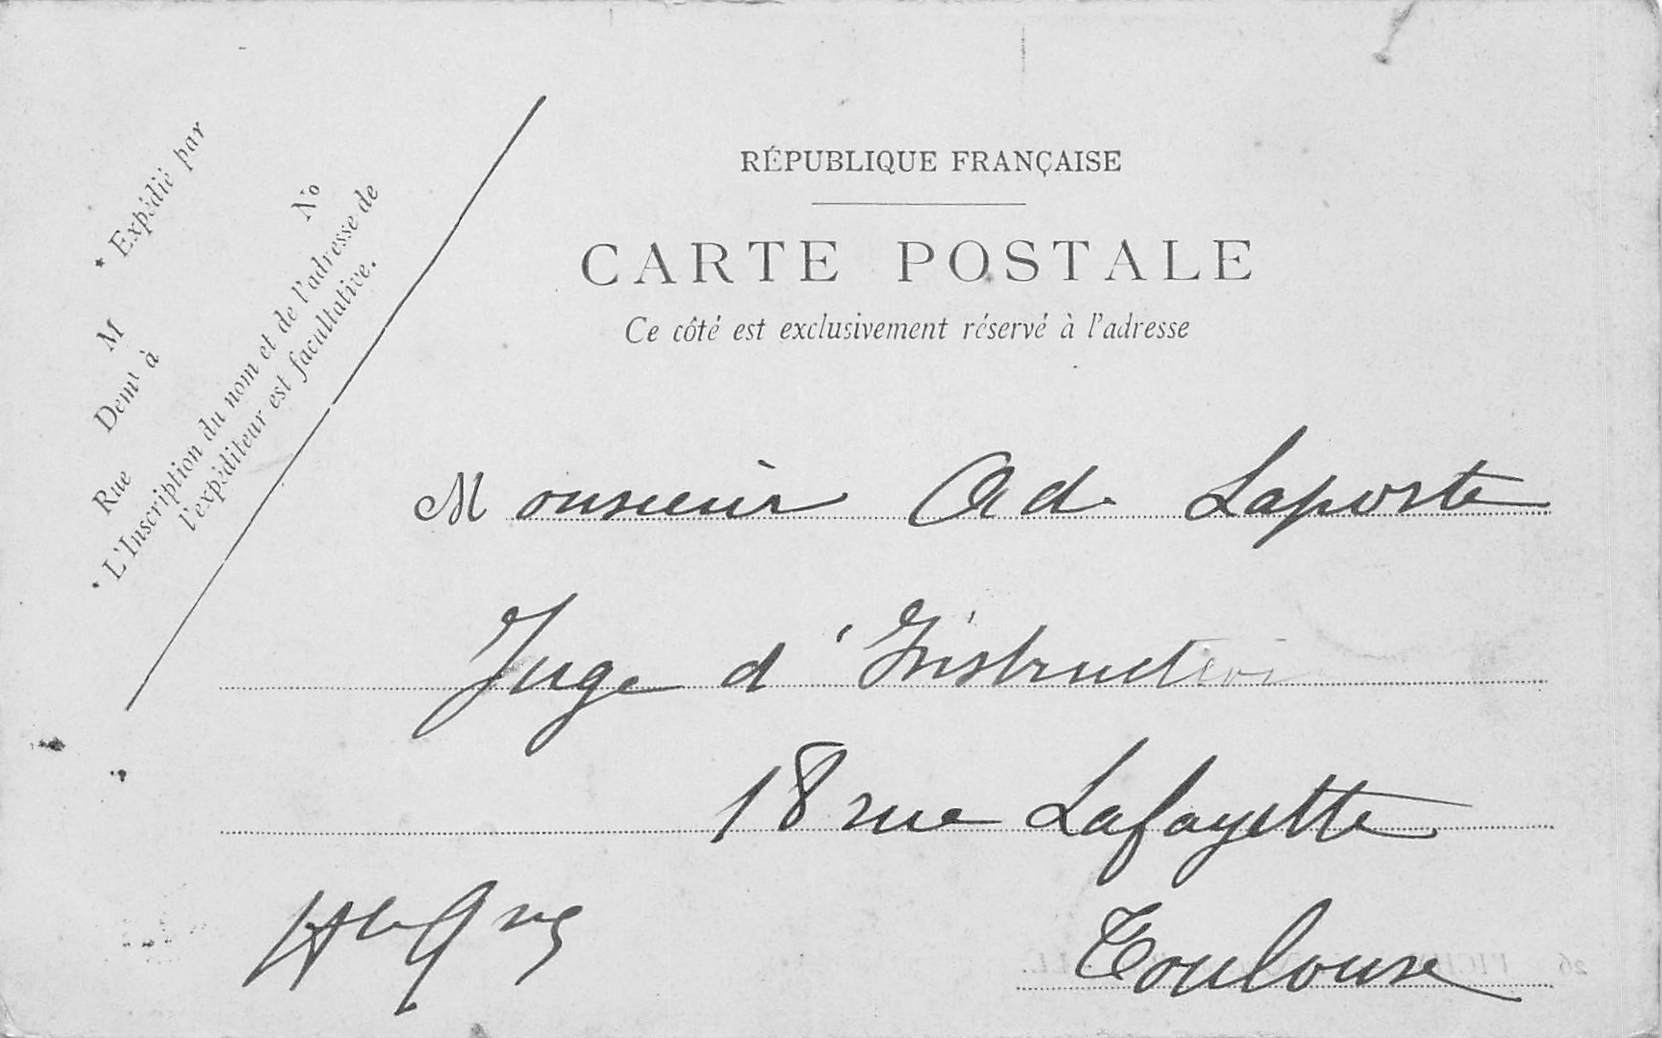 RÉPUBLIQUE FRANÇAISE
CARTE POSTALE
Ce côté est exclusivement réservé à l'adresse
* Expédié par
M
Demt à
Rue
No
* L'Inscription du nom et de l'adresse de
l'expéditeur est facultative.
Monsieur Ad. Laporte
Juge d'Instruction
18 rue Lafayette
Hte Gne
Toulouse